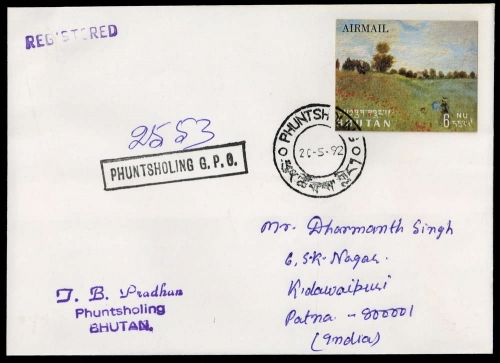 REGISTERED
AIRMAIL
BHUTAN 6 NU.
2553
PHUNTSHOLING G.P.O.
PHUNTSH
20-5-92
Mr. Dharmanth Singh
6, S.K- Nagar
Kidawaipuri
Patna - 800001
(India)
T. B. Pradhan
Phuntsholing
BHUTAN.